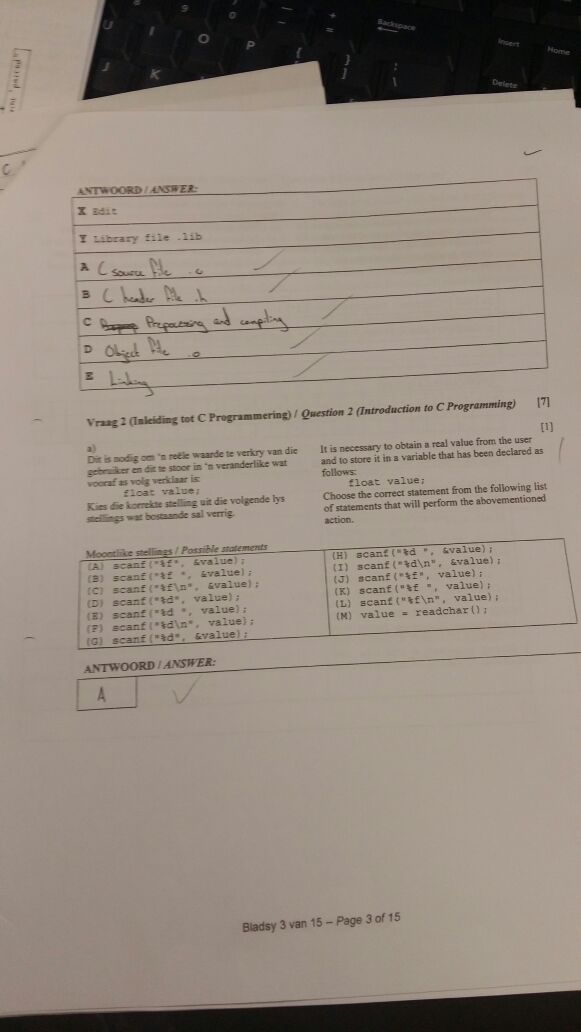 9
0
+
=
Backspace
Insert
Home
U
I
O
P
{
[
}
]
\
Delete
J
K
ANTWOORD / ANSWER:
X Edit
Y Library file .lib
A C source file .c
B C header file .h
C Preprocessing and compiling
D Object file .o
E Linking
Vraag 2 (Inleiding tot C Programmering) / Question 2 (Introduction to C Programming) [7]
[1]
a)
Dit is nodig om 'n reële waarde te verkry van die
gebruiker en dit te stoor in 'n veranderlike wat
vooraf as volg verklaar is:
float value;
Kies die korrekte stelling uit die volgende lys
stellings wat bostaande sal verrig.
It is necessary to obtain a real value from the user
and to store it in a variable that has been declared as
follows:
float value;
Choose the correct statement from the following list
of statements that will perform the abovementioned
action.
Moontlike stellings / Possible statements
(A) scanf("%f", &value);
(B) scanf("%f ", &value);
(C) scanf("%f\n", &value);
(D) scanf("%d", value);
(E) scanf("%d ", value);
(F) scanf("%d\n", value);
(G) scanf("%d", &value);
(H) scanf("%d ", &value);
(I) scanf("%d\n", &value);
(J) scanf("%f", value);
(K) scanf("%f ", value);
(L) scanf("%f\n", value);
(M) value = readchar();
ANTWOORD / ANSWER:
A
Bladsy 3 van 15 – Page 3 of 15